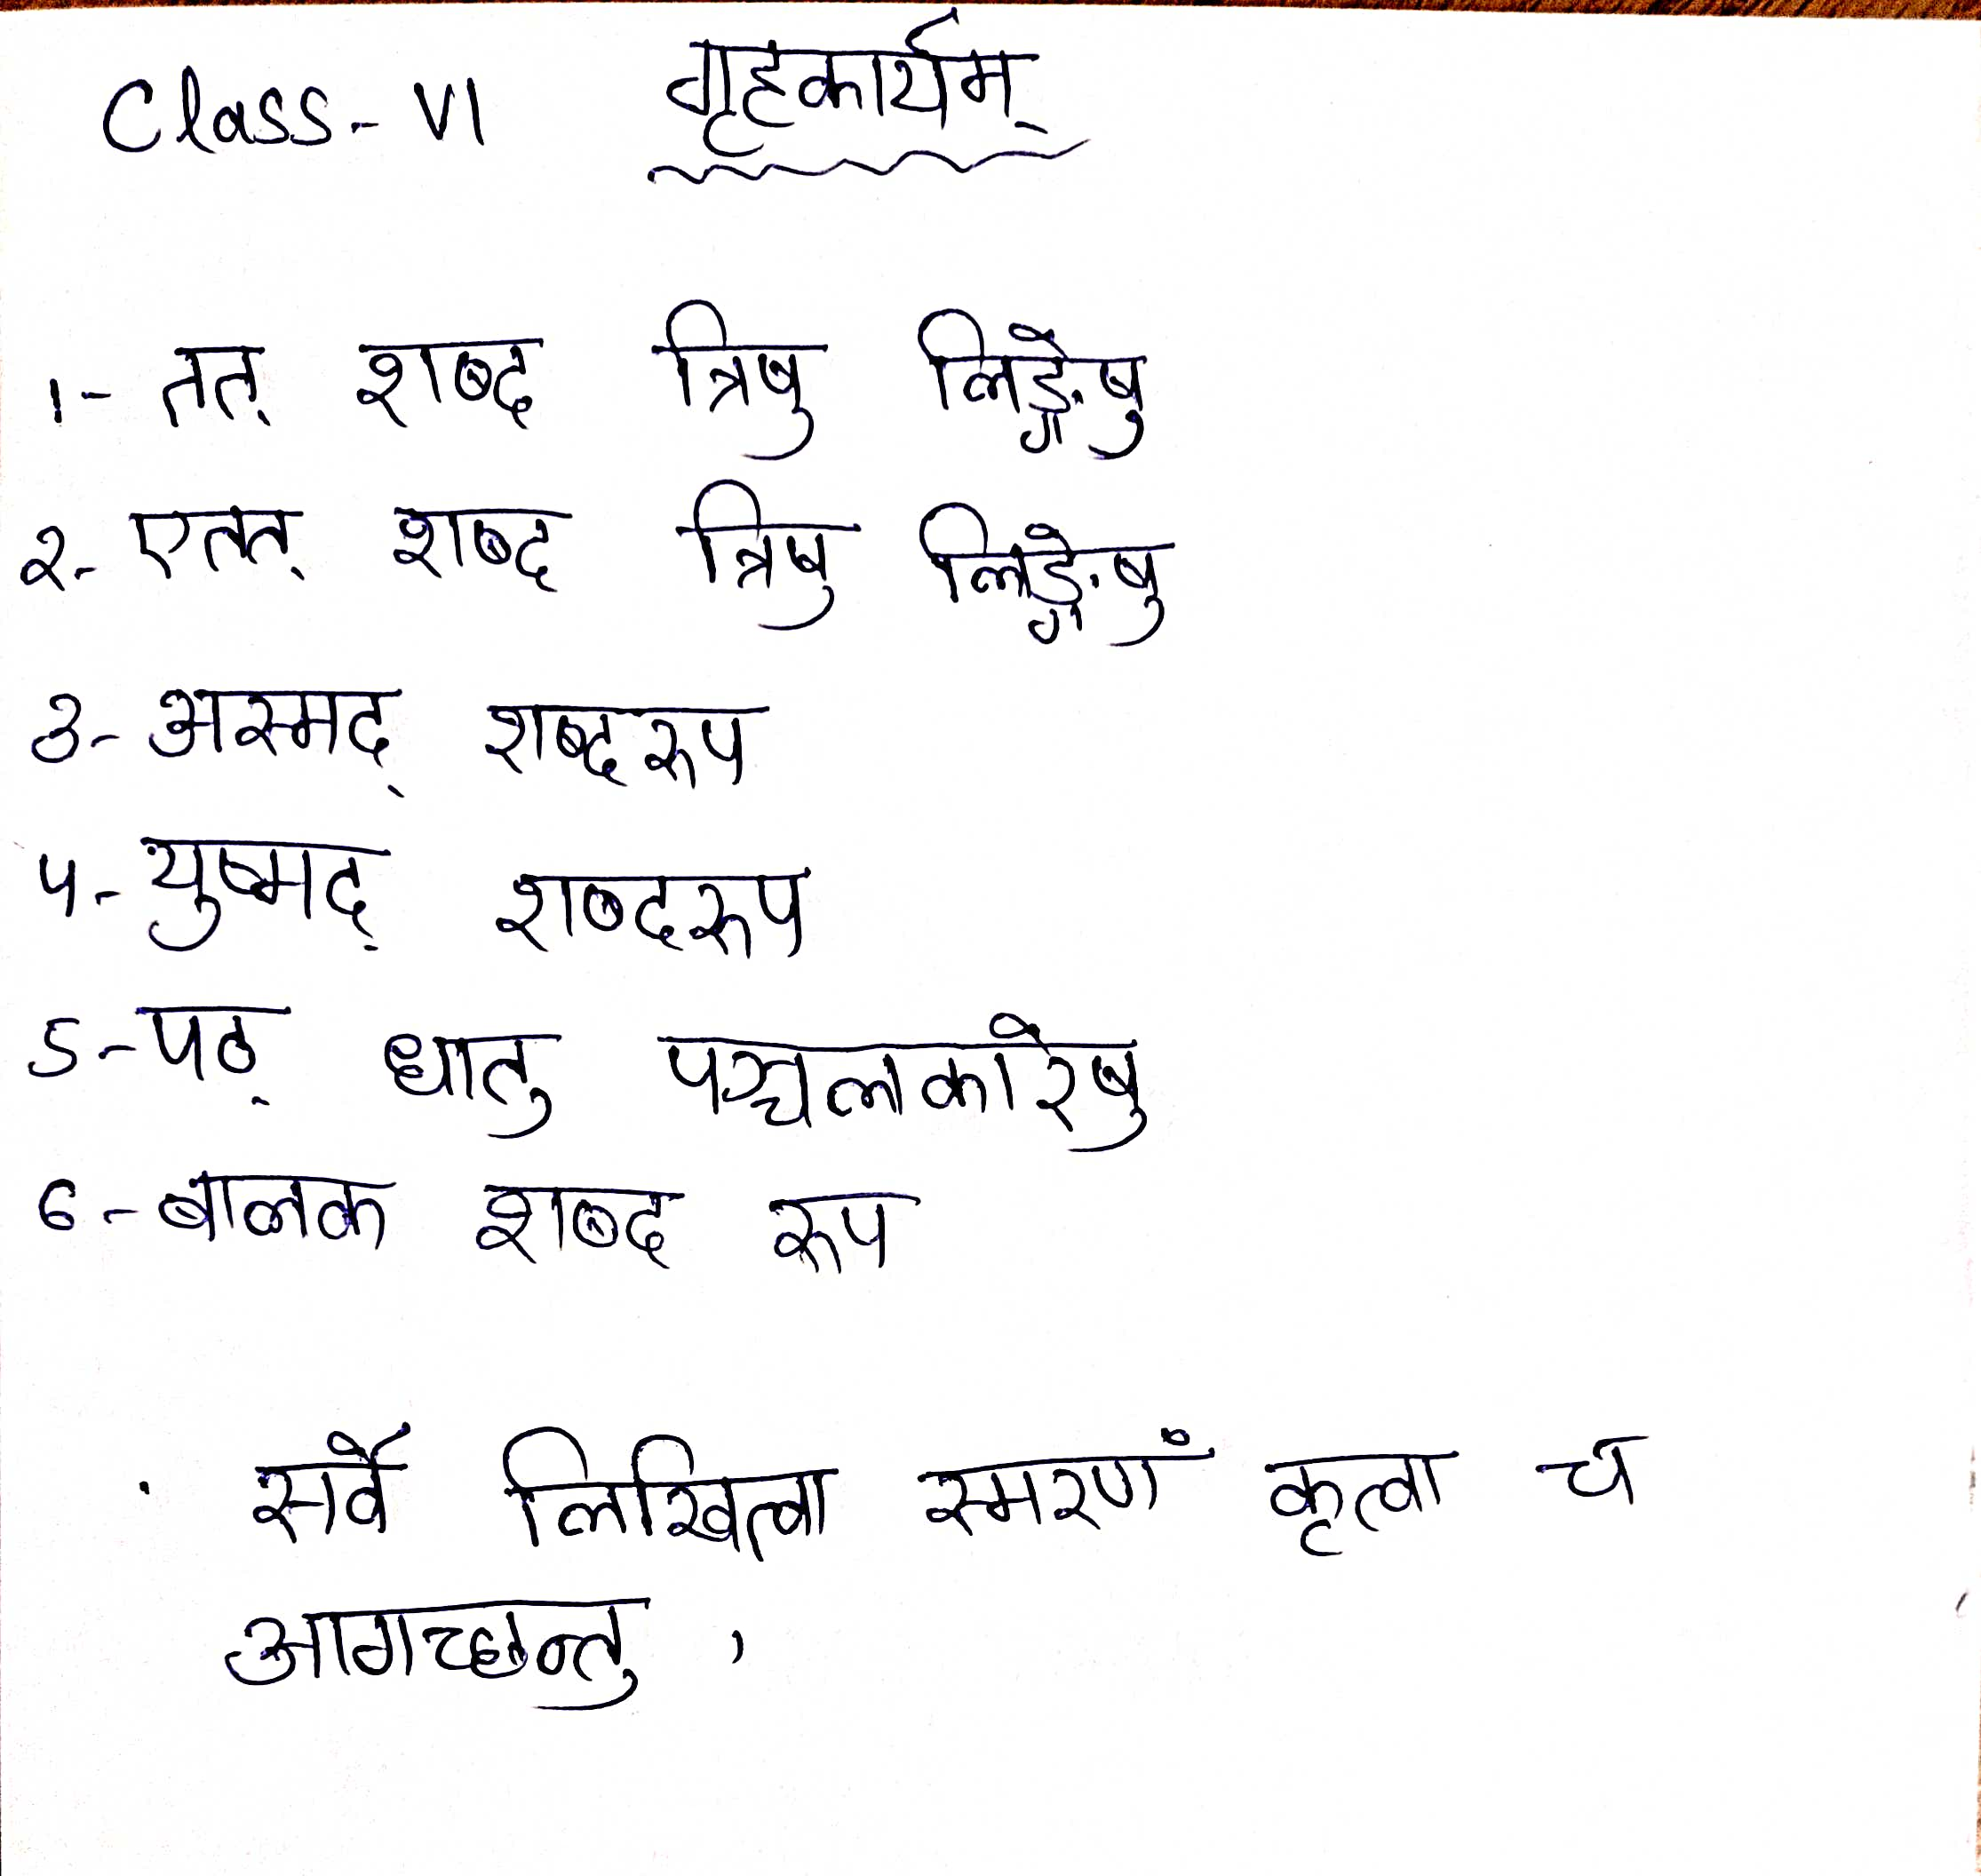 Class - VI गृहकार्यम्
1 - तत् शब्द त्रिषु लिङ्गेषु
2 - एतत् शब्द त्रिषु लिङ्गेषु
3 - अस्मद् शब्दरूप
4 - युष्मद् शब्दरूप
5 - पठ् धातु पञ्चलकारेषु
6 - बालक शब्द रूप
सर्वे लिखित्वा स्मरणं कृत्वा च
आगच्छन्तु ,